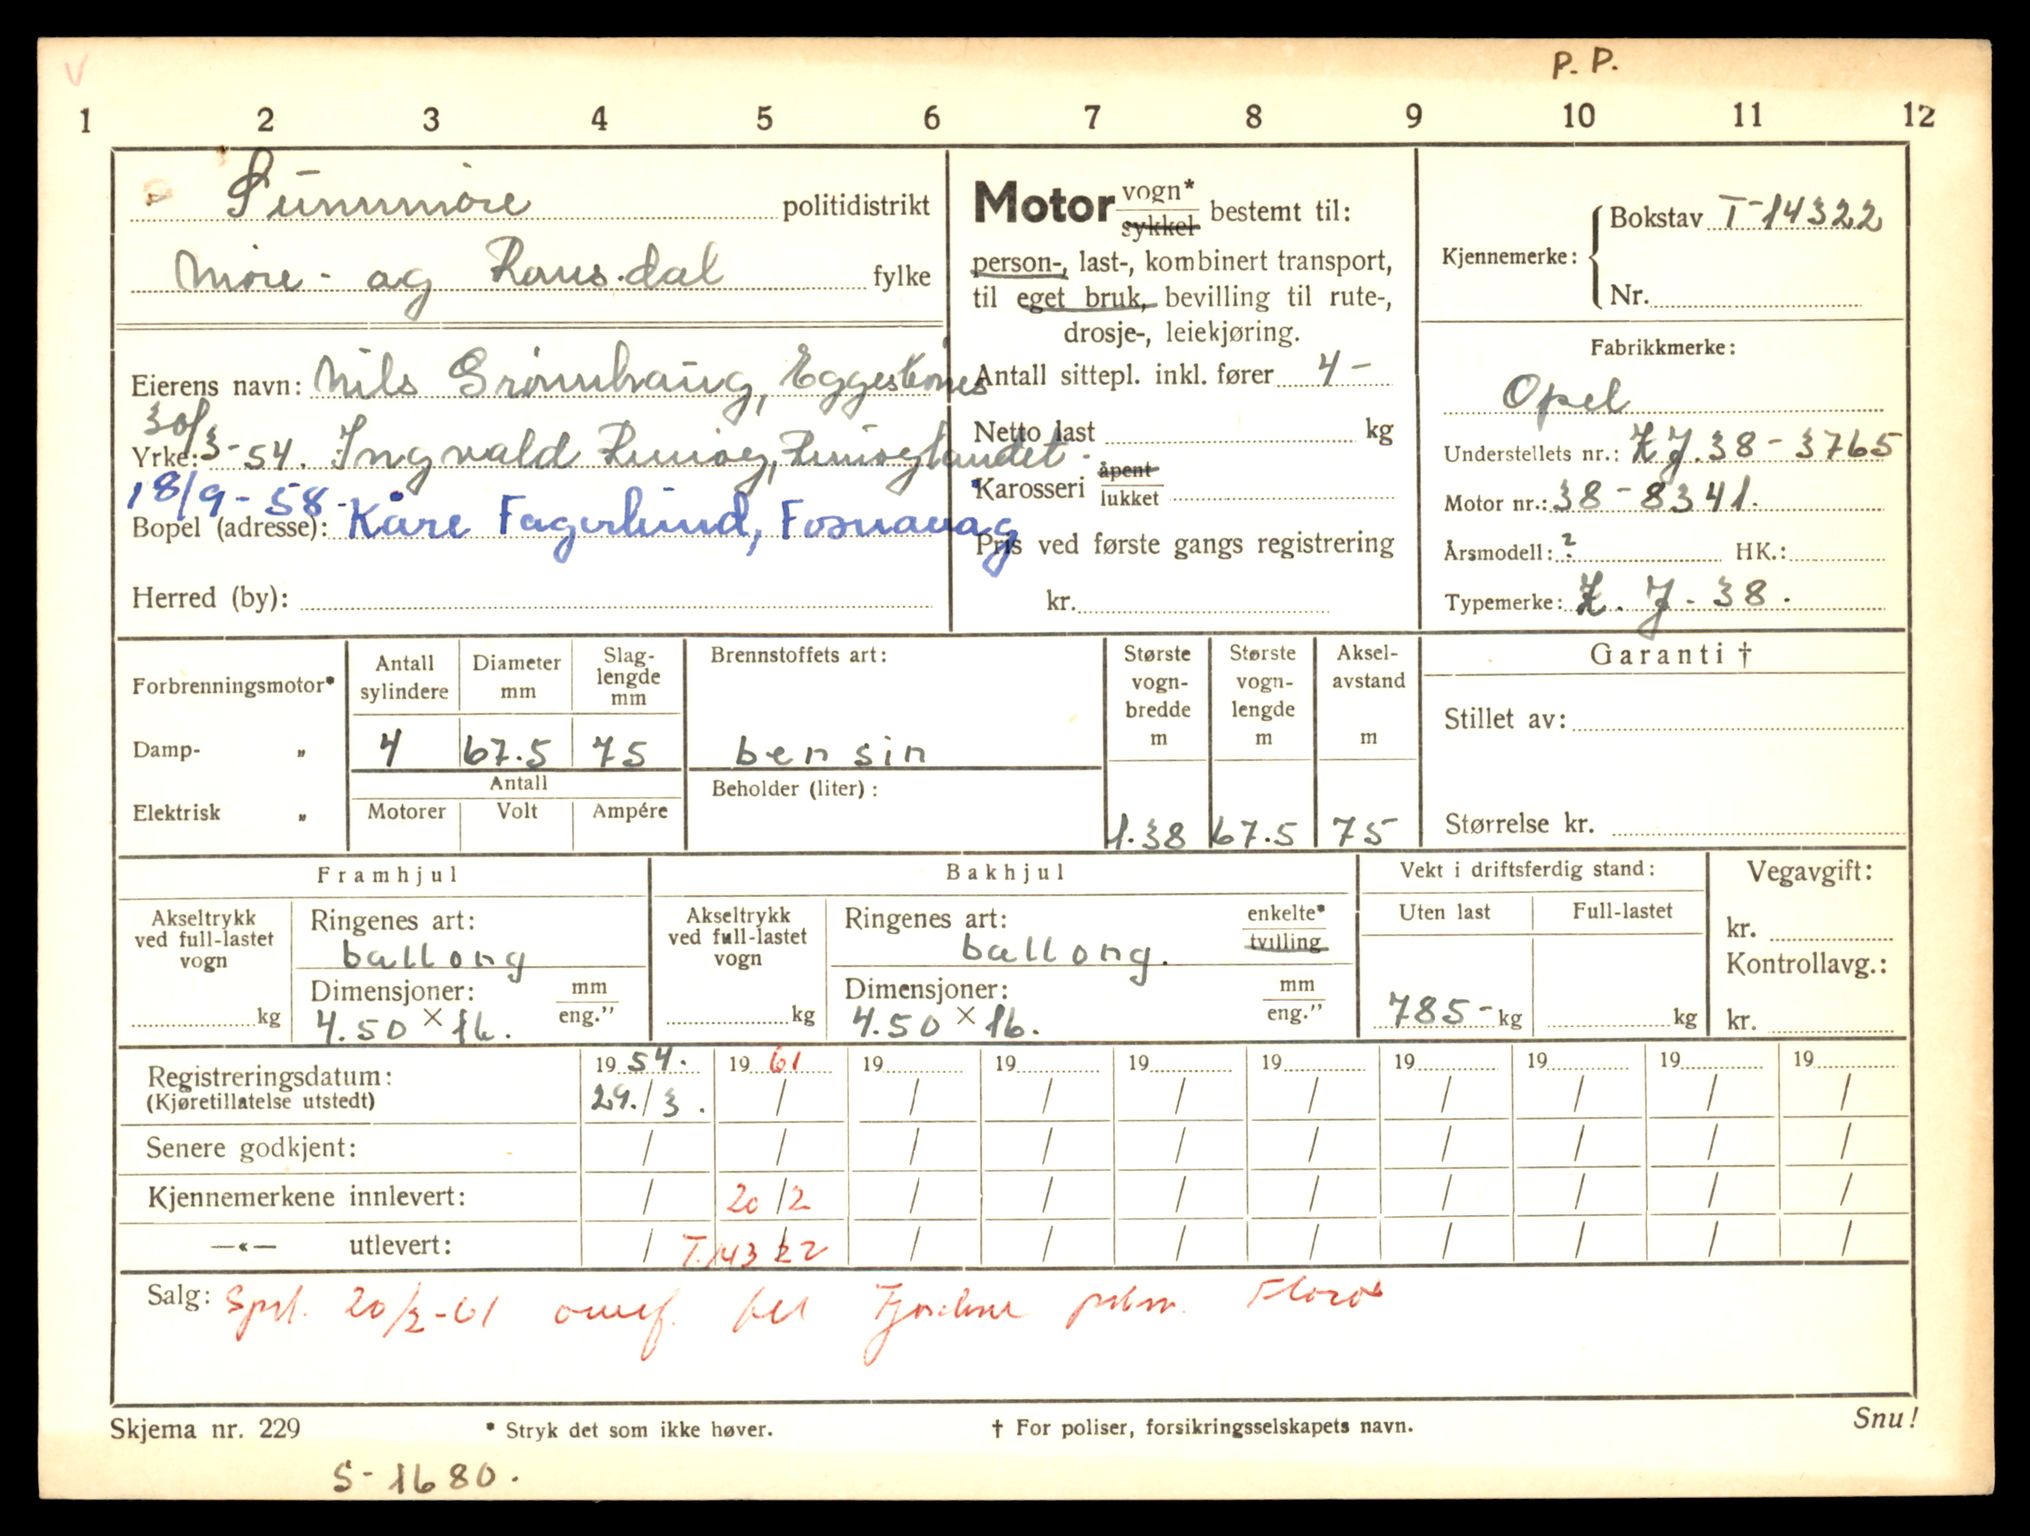 V
P. P.
1 2 3 4 5 6 7 8 9 10 11 12
Sunnmøre politidistrikt
Møre- og Romsdal fylke
Eierens navn: Nils Grønnhaug, Eggesbønes
30/3-54. Ingvald Runøy, Runøylandet.
Yrke:
18/9-58. Kåre Fagerlund, Fosnavaag
Bopel (adresse):
Herred (by):
Motor vogn*
sykkel bestemt til:
person-, last-, kombinert transport,
til eget bruk, bevilling til rute-,
drosje-, leiekjøring.
Antall sittepl. inkl. fører 4-
Netto last kg
Karosseri åpent
lukket
Pris ved første gangs registrering
kr.
Kjennemerke: Bokstav T-14322
Nr.
Fabrikkmerke:
Opel
Understellets nr.: K J. 38-3765
Motor nr.: 38-8341.
Årsmodell: ? HK.:
Typemerke: K. J-38.
Forbrenningsmotor*
Damp- „
Elektrisk „
Antall sylindere
4
Diameter mm
67.5
Slag-
lengde
mm
75
Antall
Motorer Volt Ampére
Brennstoffets art:
bensin
Beholder (liter):
Største
vogn-
bredde
m
1.38
Største
vogn-
lengde
m
67.5
Aksel-
avstand
m
75
Garanti †
Stillet av:
Størrelse kr.
Framhjul
Akseltrykk
ved full-lastet
vogn
kg
Ringenes art:
ballong
Dimensjoner: mm
eng.”
4.50 × 16.
Bakhjul
Akseltrykk
ved full-lastet
vogn
kg
Ringenes art: enkelte*
tvilling
ballong.
Dimensjoner: mm
eng.”
4.50 × 16.
Vekt i driftsferdig stand:
Uten last Full-lastet
785- kg kg
Vegavgift:
kr.
Kontrollavg.:
kr.
19 54. 19 61 19 19 19 19 19 19 19 19
Registreringsdatum:
(Kjøretillatelse utstedt) 29./3. / / / / / / / / /
Senere godkjent: / / / / / / / / / /
Kjennemerkene innlevert: / 20/2 / / / / / / / /
—«— utlevert: / T.14322 / / / / / / / /
Salg: 20/2-61 Florø
Skjema nr. 229
* Stryk det som ikke høver.
† For poliser, forsikringsselskapets navn.
Snu!
S-1680.